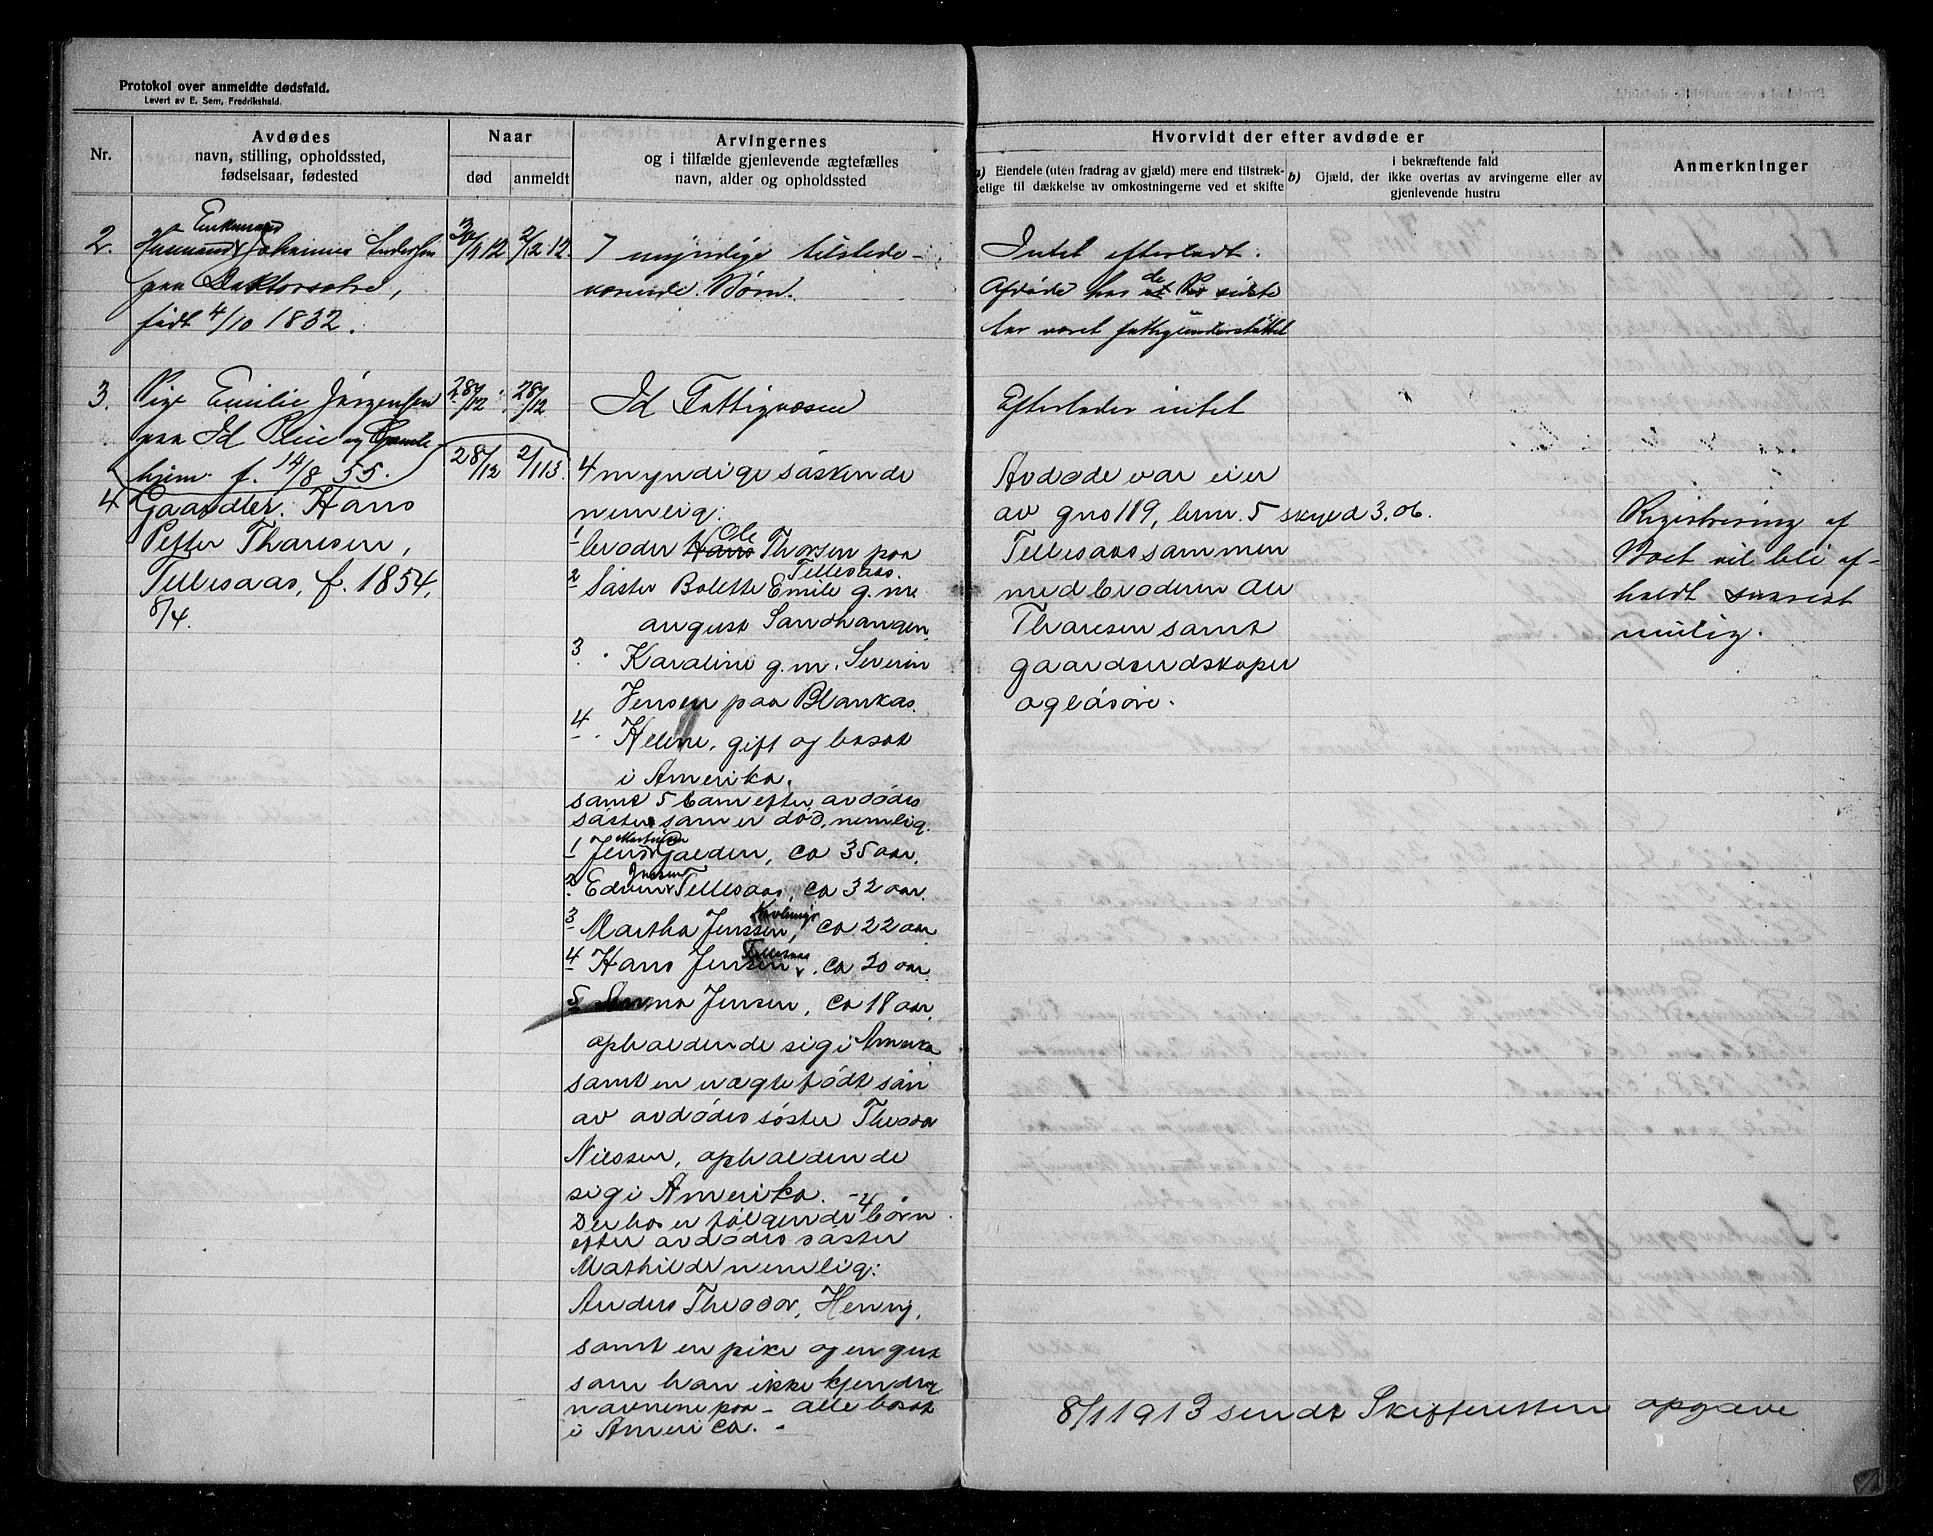 Protokol over anmeldte dødsfald.
Levert av E. Sem, Fredrikshald.
Nr.
Avdødes
navn, stilling, opholdssted,
fødselsaar, fødested
Naar
død
anmeldt
Arvingernes
og i tilfælde gjenlevende ægtefælles
navn, alder og opholdssted
Hvorvidt der efter avdøde er
a) Eiendele (uten fradrag av gjæld) mere end tilstræk-
kelige til dækkelse av omkostningerne ved et skifte
i bekræftende fald
b) Gjæld, der ikke overtas av arvingerne eller av
gjenlevende hustru
Anmerkninger
2.
Enkemand
Husmand Johannes Andersen
paa
født 4/10 1832.
30/1 12
2/2 12.
7 myndige tilstede-
værende Børn.
Intet efterladt.
Afdøde har de sidste
aar været fattigunderstøttet
3.
Pige Emilie Jørgensen
paa Id Pleie og Gamle
hjem. f. 14/8 55.
28/12
28/12
Id Fattigvæsen
Efterlader intet
4
Gaardbr. Hans
Petter Thoresen,
Tellesaas, f. 1854,
8/4.
28/12
2/1 13.
4 myndige søskende
nemlig:
1 broder Hans Ole Thorsen paa
Tellesaas.
2 Søster Bolette Emile g. m.
august Sandhaugen.
3 " Karoline g. m. Severin
Jensen paa Blankas.
4 " Helene, gift og bosat
i Amerika.
samt 5 barn efter avdødes
søster som er død, nemlig.
1 Jens Martinsen Galden, ca 35 aar.
2 Edvin Jensen Tellesaas, ca 32 aar.
3 Martha Jenssen, ca 22 aar.
4 Hans Jensen Tellesaas, ca 20 aar.
5 Anna Jensen, ca 18 aar.
opholdende sig i Amerika
samt en uægte født søn
av avdødes søster Theodor
Nilssen, opholdende
sig i Amerika. -
Derhos er følgende 4 børn
efter avdødes søster
Mathilde nemlig:
Anders Theodor, Henry,
samt en pike og en gut
som han ikke kjender
navnene paa - alle bosat
i America. -
Avdøde var eier
av gno 119, brno. 5 skyld 3.06.
Tellesaas sammen
med broderen Ole
Thoresen samt
gaardsredskaper
og løsøre.
Registrering af
Boet vil bli af-
holdt snarest
mulig.
8/1 1913 sendt Skifteretten opgave